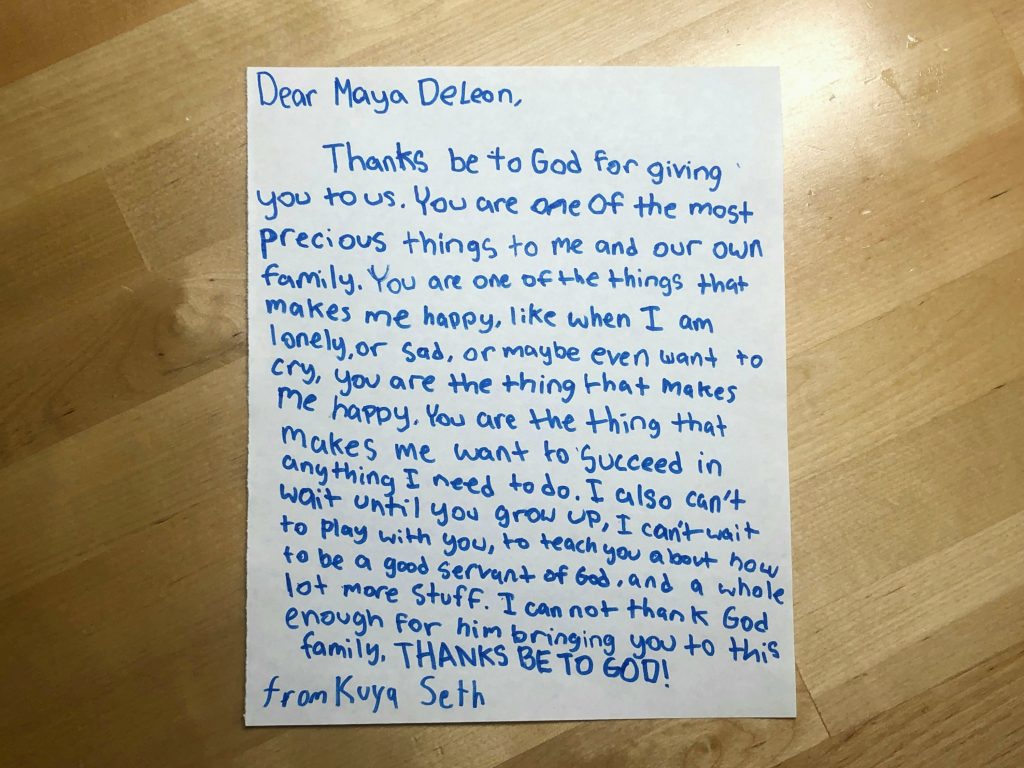 Dear Maya DeLeon,
Thanks be to God for giving
you to us. You are one of the most
precious things to me and our own
family. You are one of the things that
makes me happy, like when I am
lonely, or sad, or maybe even want to
cry, you are the thing that makes
me happy. You are the thing that
makes me want to succeed in
anything I need to do. I also can't
wait until you grow up, I can't wait
to play with you, to teach you about how
to be a good servant of God, and a whole
lot more stuff. I can not thank God
enough for him bringing you to this
family. THANKS BE TO GOD!
from Kuya Seth